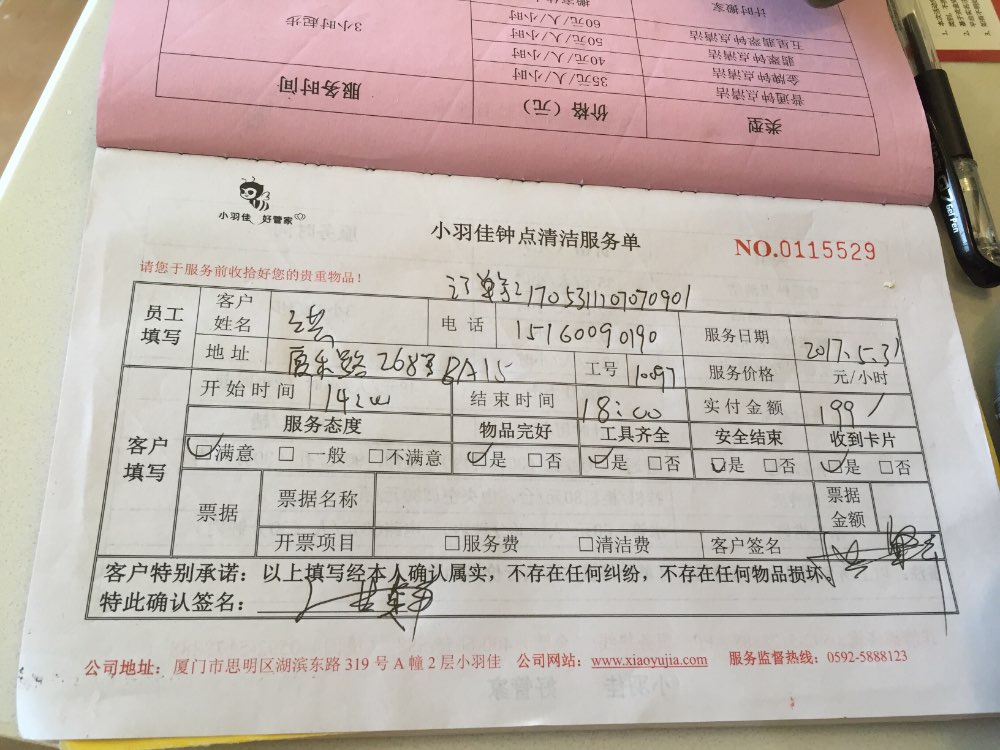 计时搬家
60元/人/小时
3小时起步
五星翡翠钟点清洁
50元/人/小时
翡翠钟点清洁
40元/人/小时
金牌钟点清洁
35元/人/小时
普通钟点清洁
服务时间
价格（元）
类型
Gel Pen
小羽佳 好管家
小羽佳钟点清洁服务单
NO.0115529
请您于服务前收拾好您的贵重物品！
订单号:170531107070901
员工填写 客户姓名 洪 电话 15160090190 服务日期 2017.5.31
地址 268号 BA15 工号 10097 服务价格 元/小时
客户填写 开始时间 14:00 结束时间 18:00 实付金额 199
服务态度 物品完好 工具齐全 安全结束 收到卡片
☑满意 □一般 □不满意 ☑是 □否 ☑是 □否 ☑是 □否 ☑是 □否
票据 票据名称 票据金额
开票项目 □服务费 □清洁费 客户签名
客户特别承诺：以上填写经本人确认属实，不存在任何纠纷，不存在任何物品损坏。
特此确认签名：
公司地址：厦门市思明区湖滨东路 319 号 A 幢 2 层小羽佳 公司网站：www.xiaoyujia.com 服务监督热线：0592-5888123